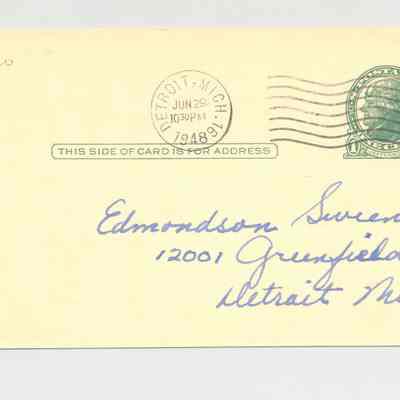 DETROIT, MICH. 16
JUN 29
10 30 PM
1948
THIS SIDE OF CARD IS FOR ADDRESS
Edmondson Sween
12001 Greenfield
Detroit M